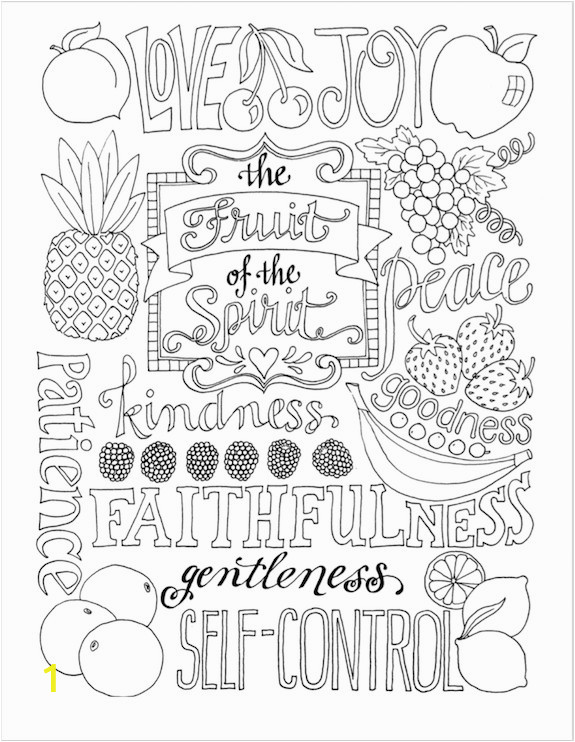 LOVE JOY
the
Fruit
of the
Spirit
peace
patience
kindness
goodness
FAITHFULNESS
gentleness
SELF-CONTROL
1